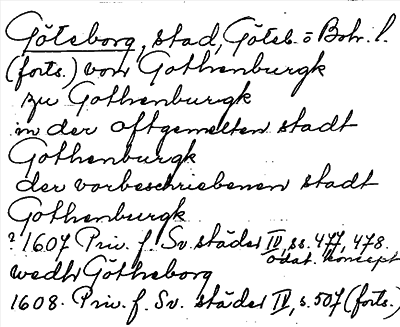 Göteborg, stad, Göteb. o Boh. l.
(forts.) von Gothenburgk
zu Gothenburgk
in der offtgemelten stadt
Gothenburgk
der vorbeschriebenen stadt
Gothenburgk
? 1607 Priv. f. Sv. städer IV, ss. 477, 478.
odat. koncept
wedh Götheborg
1608. Priv. f. Sv. städer IV, s. 507 (forts.)